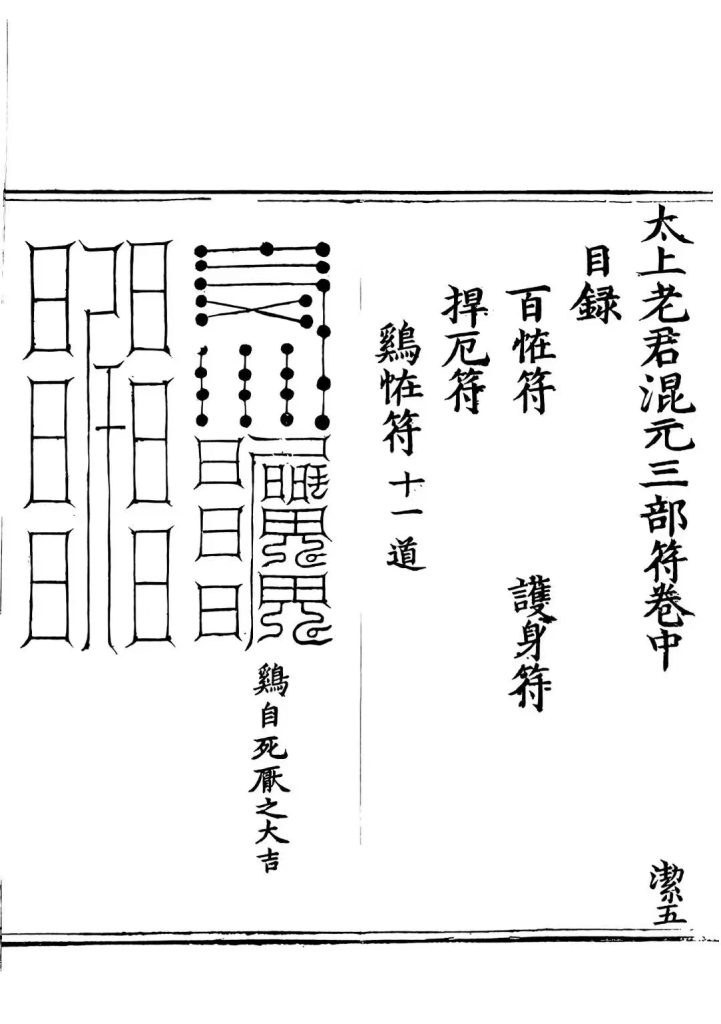 太上老君混元三部符卷中
潔五
目録
百恠符
護身符
捍厄符
鷄恠符 十一道
鷄自死厭之大吉